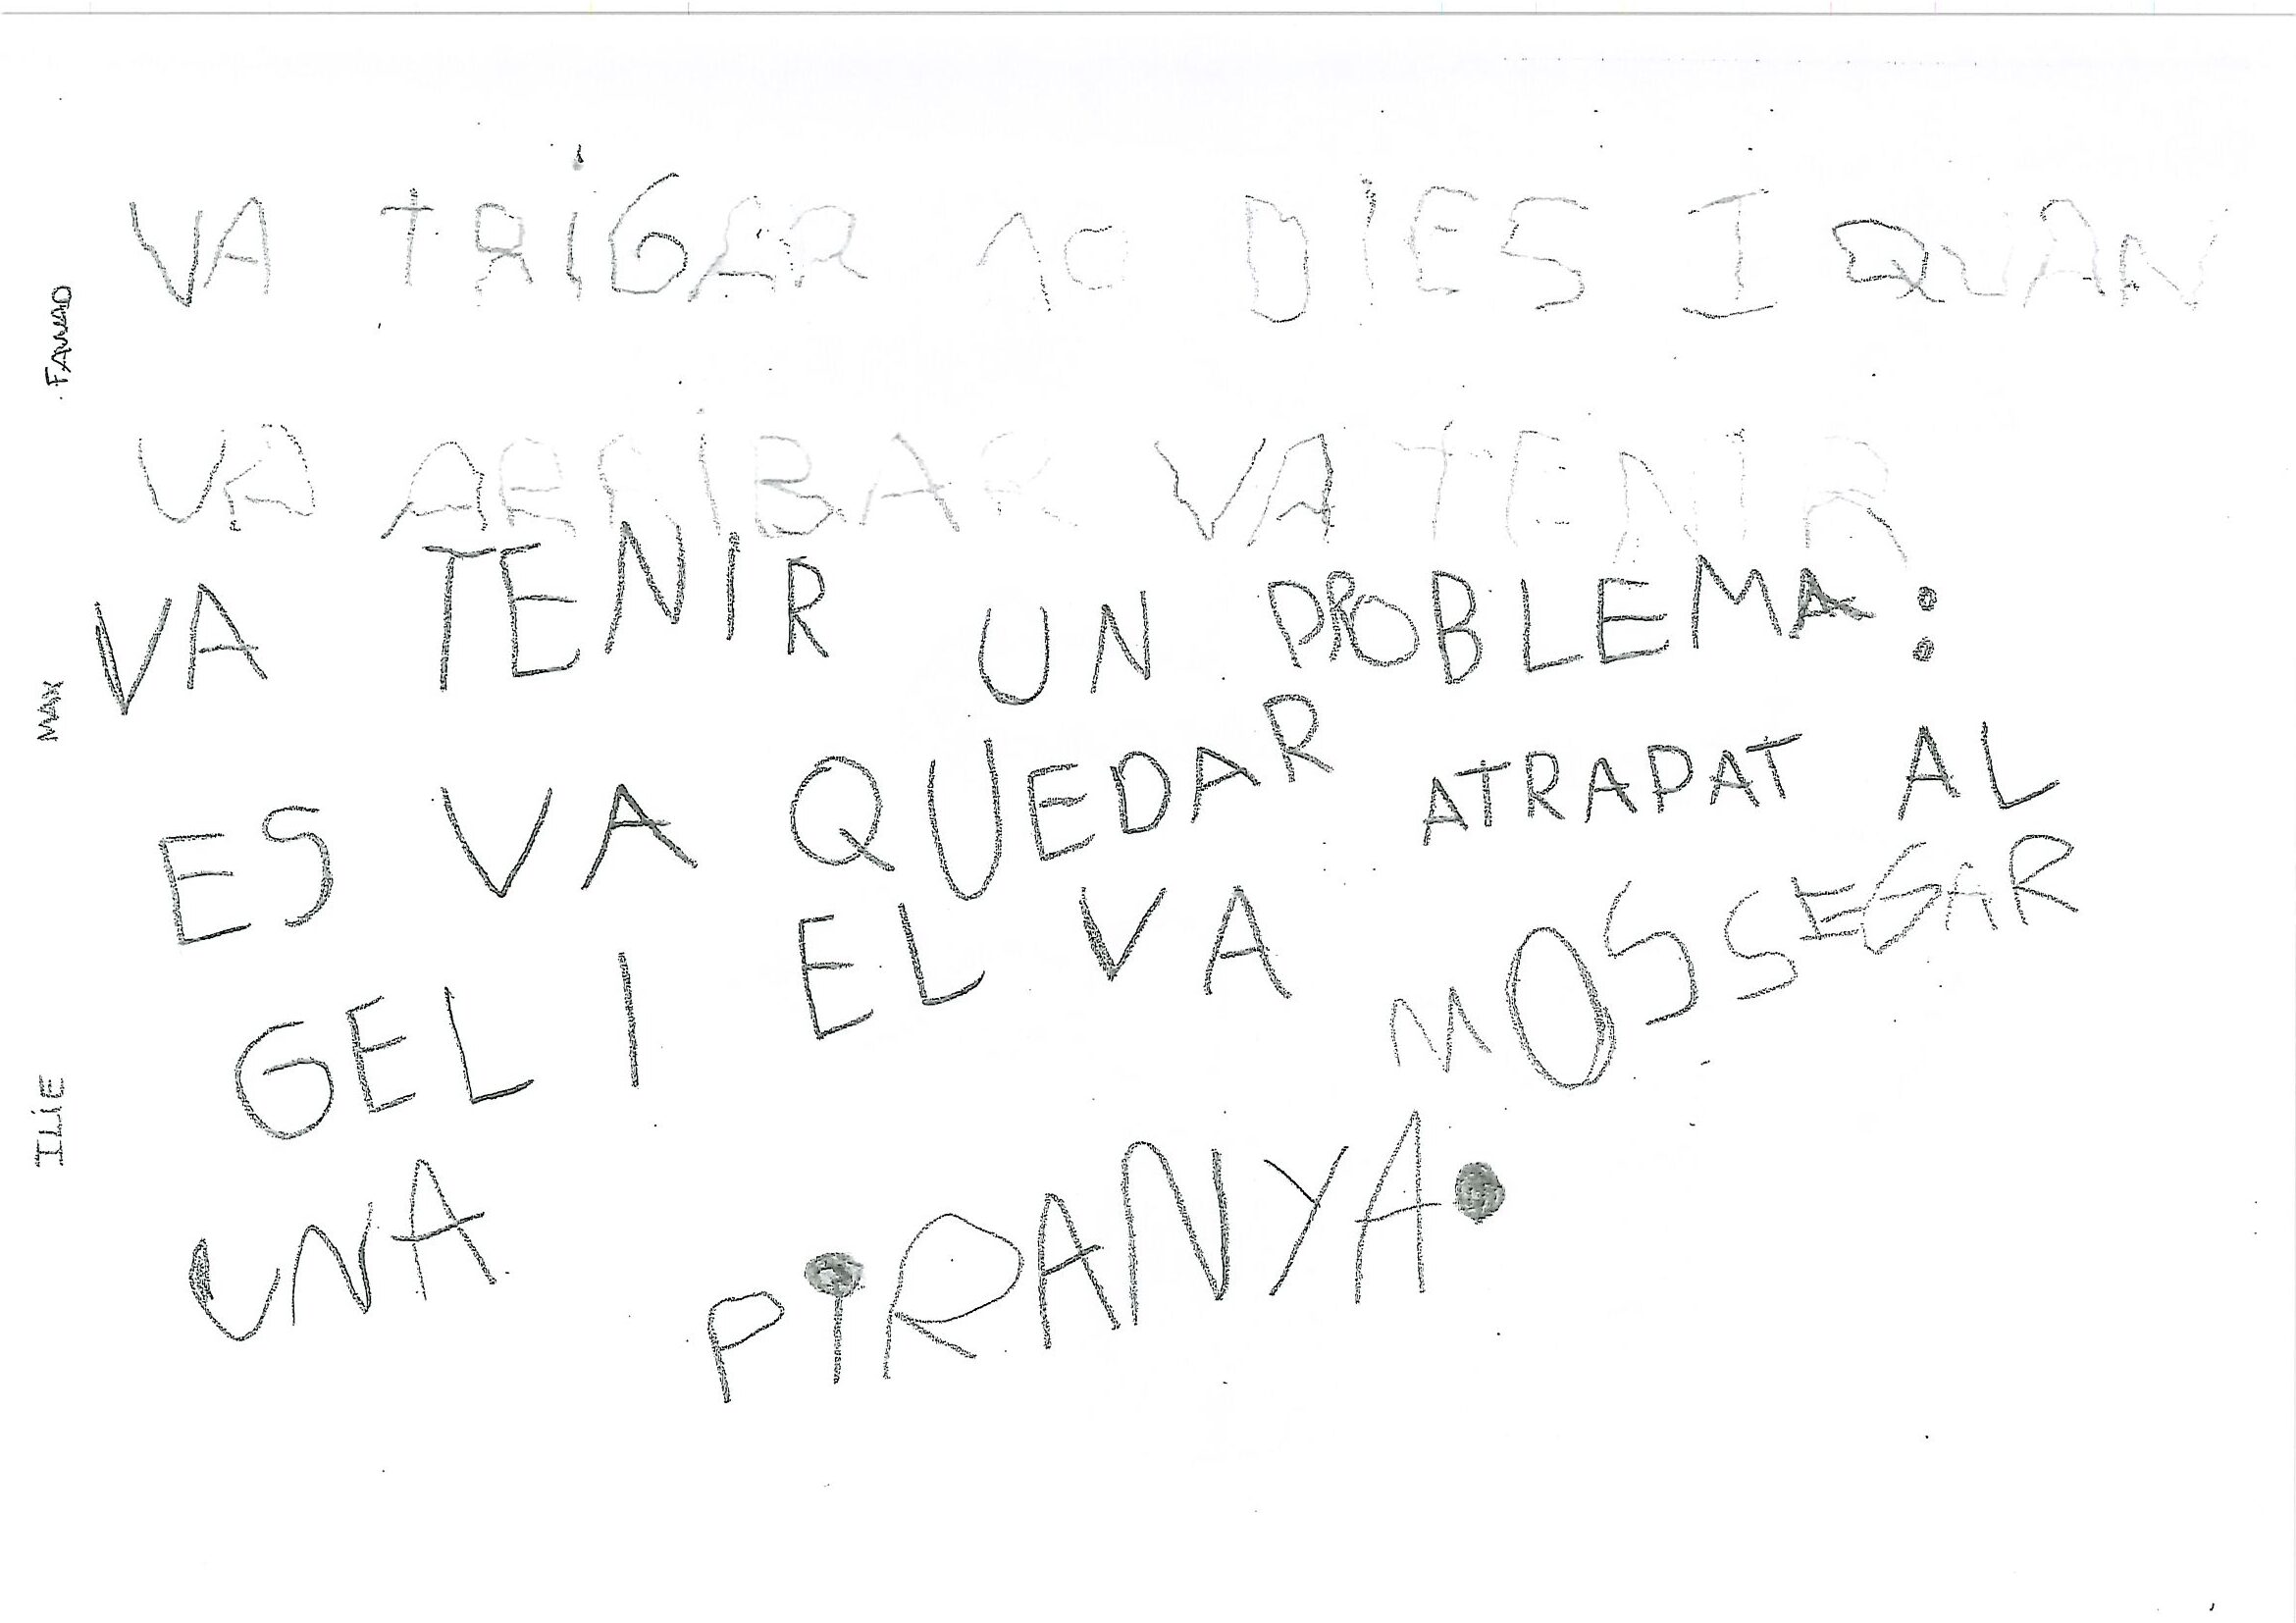 VA TRIGAR 10 DIES I QUAN
VA ARRIBAR VA TENIR
VA TENIR UN PROBLEMA:
ES VA QUEDAR ATRAPAT AL
GEL I EL VA MOSSEGAR
UNA PIRANYA.
FAWAD
MAX
ILIE